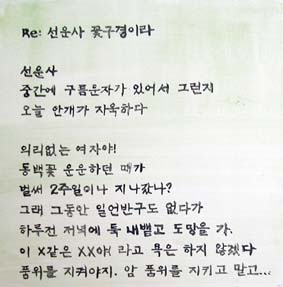 Re: 선운사 꽃구경이라
선운사
중간에 구름운자가 있어서 그런지
오늘 안개가 자욱하다
의리없는 여자야!
동백꽃 운운하던 때가
벌써 2주일이나 지나갔나?
그래 그동안 일언반구도 없다가
하루전 저녁에 툭 내뱉고 도망을 가.
이 X같은 XX야! 라고 욕은 하지 않겠다
품위를 지켜야지. 암 품위를 지키고 말고...